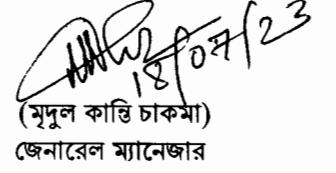 18/07/23
(মৃদুল কান্তি চাকমা)
জেনারেল ম্যানেজার